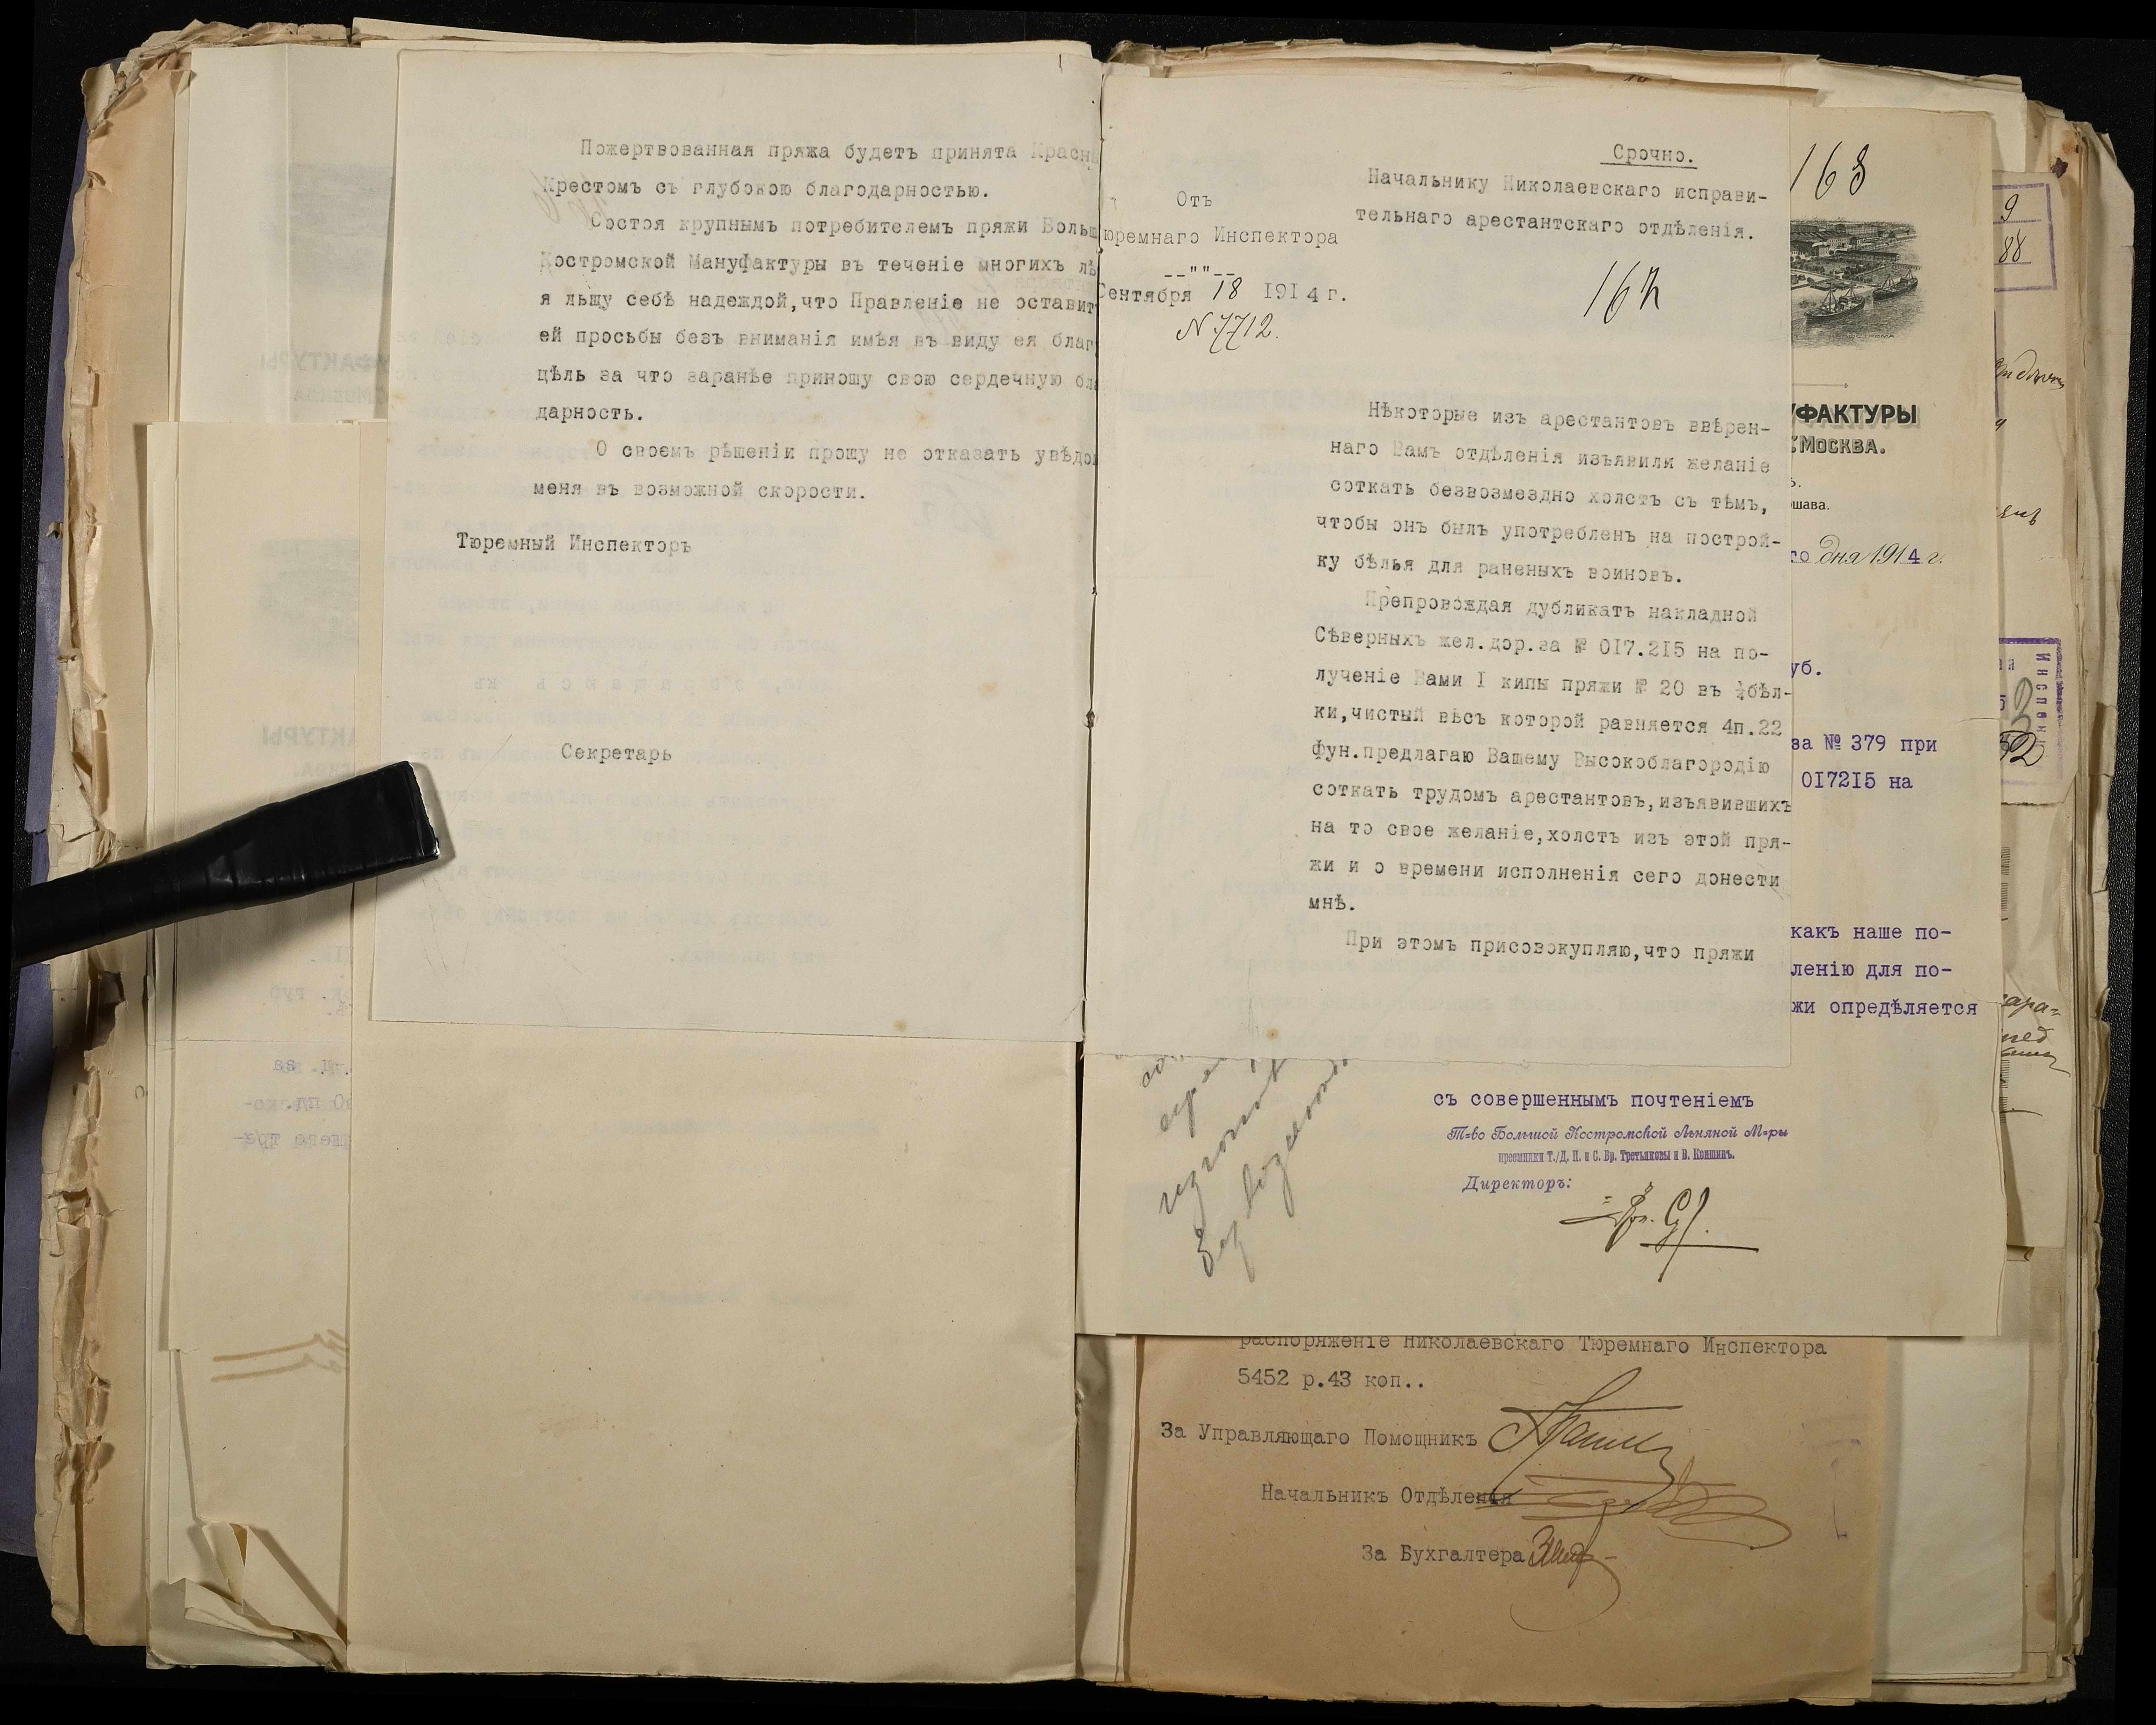 Пожертвованная пряжа будетъ принята Красн
Крестомъ съ глубокою благодарностью.
Состоя крупнымъ потребителемъ пряжи Больш
Костромской Мануфактуры въ теченіе многихъ лѣ
я льщу себѣ надеждой,что Правленіе не оставит
ей просьбы безъ вниманія имѣя въ виду ея благ
цѣль за что заранѣе приношу свою сердечную бла
дарность.
О своемъ рѣшеніи прошу не отказать увѣдо
меня въ возможной скорости.
Тюремный Инспекторъ
Секретарь
Срочно.
Начальнику Николаевскаго исправи-
тельнаго арестантскаго отдѣленія.
Отъ
юремнаго Инспектора
--""--
Сентября 18 1914 г.
N 7712.
Нѣкоторые изъ арестантовъ ввѣрен-
наго Вамъ отдѣленія изъявили желаніе
соткать безвозмездно холстъ съ тѣмъ,
чтобы онъ былъ употребленъ на построй-
ку бѣлья для раненыхъ воиновъ.
Препровождая дубликатъ накладной
Сѣверныхъ жел.дор.за № 017.215 на по-
лученіе Вами I кипы пряжи № 20 въ ¾ бѣл-
ки,чистый вѣсъ которой равняется 4п.22
фун.предлагаю Вашему Высокоблагородію
соткать трудомъ арестантовъ,изъявившихъ
на то свое желаніе,холстъ изъ этой пря-
жи и о времени исполненія сего донести
мнѣ.
При этомъ присовокупляю,что пряжи
168
УФАКТУРЫ
МОСКВА.
шава.
го дня 1914 г.
уб.
за № 379 при
017215 на
какъ наше по-
ленію для по-
жи опредѣляется
съ совершеннымъ почтеніемъ
Т-во Большой Костромской Льняной М-ры
преемники Т./Д. П. и С. Бр. Третьяковы и В. Коншинъ.
Директоръ:
распоряженіе Николаевскаго Тюремнаго Инспектора
5452 р.43 коп..
За Управляющаго Помощникъ
Начальникъ Отдѣленія
За Бухгалтера
9
88
Инспек